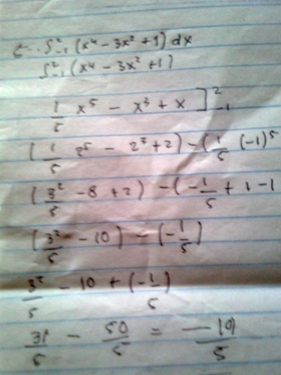 ∫²₋₁ (x⁴ - 3x² + 1) dx
∫²₋₁ (x⁴ - 3x² + 1)
1/5 x⁵ - x³ + x ]²₋₁
(1/5 2⁵ - 2³ + 2) - (1/5 (-1)⁵
(3²/5 - 8 + 2) - (-1/5 + 1 - 1
(3²/5 - 10) - (-1/5)
3²/5 - 10 + (-1/5)
31/5 - 50/5 = -19/5